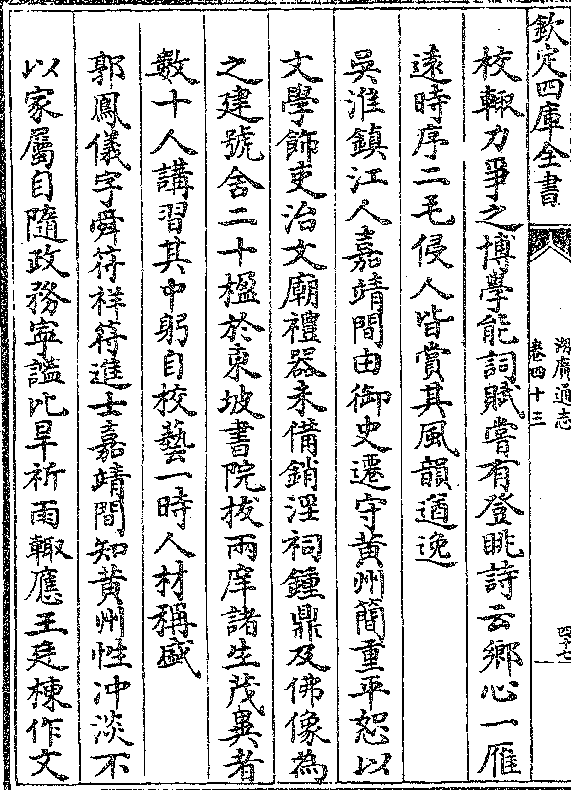 欽定四庫全書
湖廣通志
卷四十三
四十七
校輙力爭之博學能詞賦嘗有登眺詩云鄉心一雁
遠時序二毛侵人皆賞其風韻遒逸
吳淮鎮江人嘉靖間由御史遷守黃州簡重平恕以
文學飾吏治文廟禮器未備銷淫祠鍾鼎及佛像為
之建號舍二十楹於東坡書院拔兩庠諸生茂異者
數十人講習其中躬自校藝一時人材稱盛
郭鳳儀字舜符祥符進士嘉靖間知黃州性冲淡不
以家屬自隨政務寧謐比旱祈雨輙應王廷棟作文